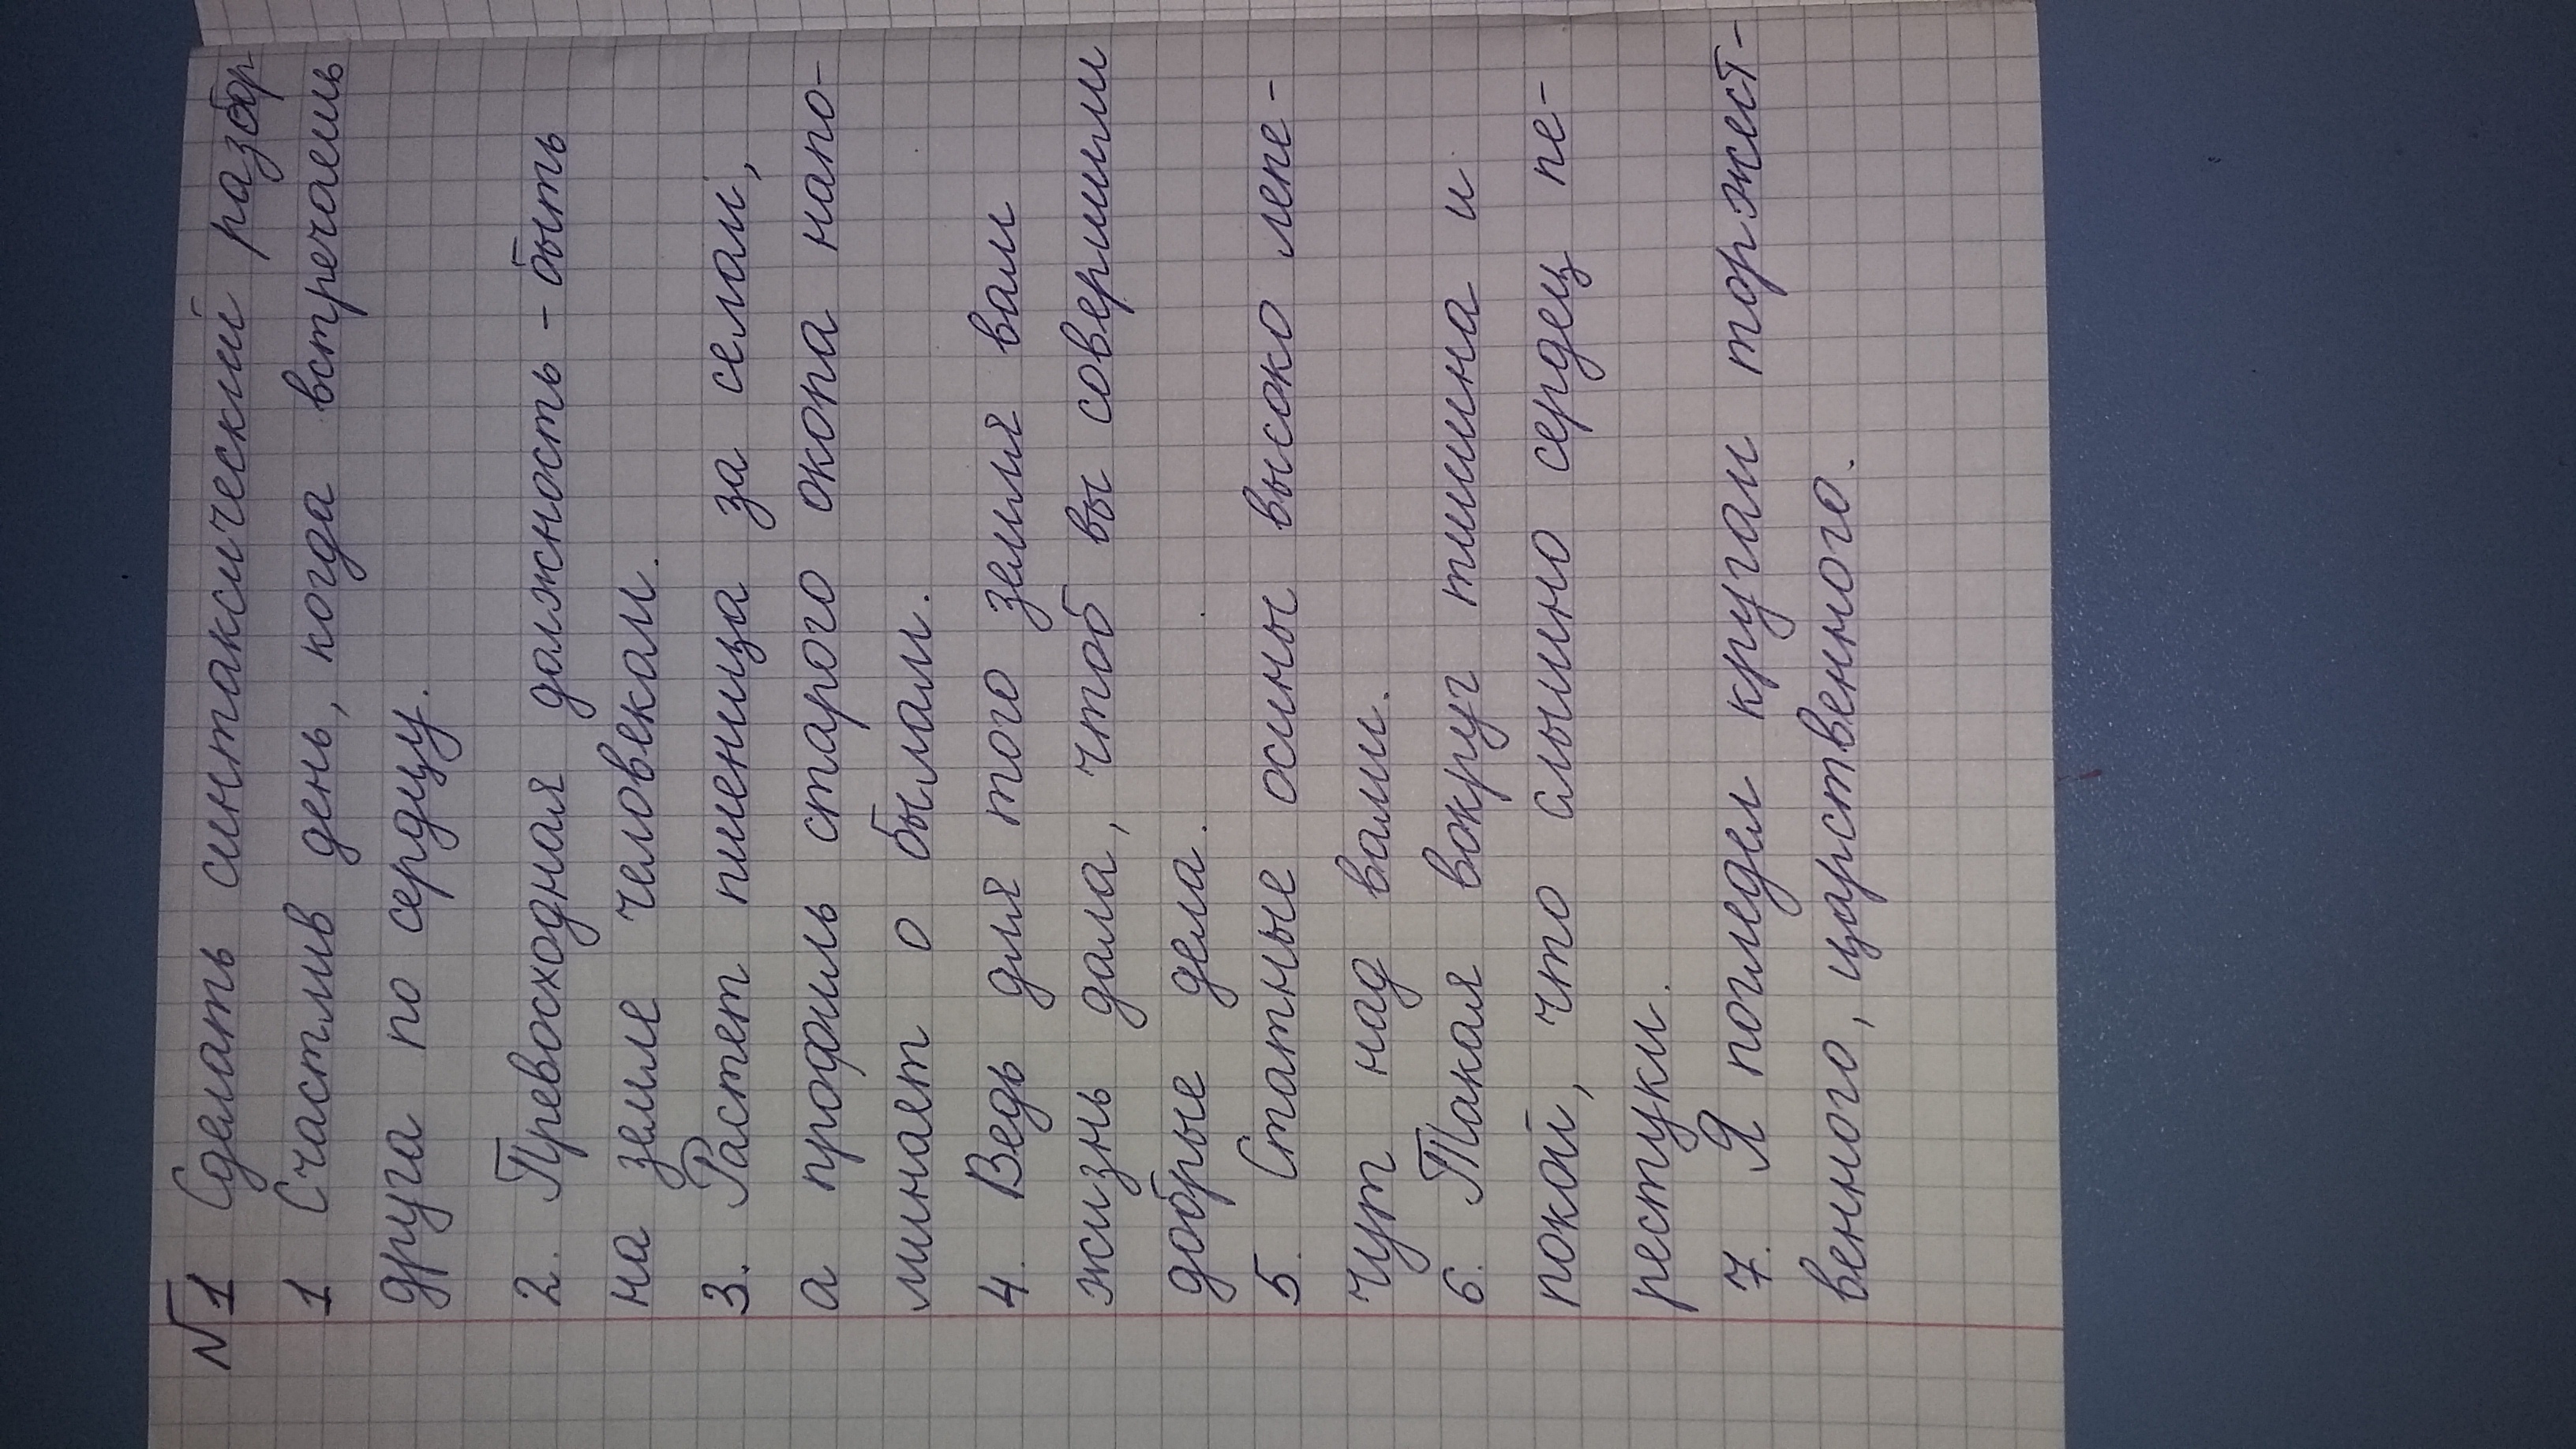 №1 Сделать синтаксический разбор
1 Счастлив день, когда встречаешь
друга по сердцу.
2. Превосходная должность - быть
на земле человеком.
3. Растет пшеница за селом,
а профиль старого окопа напо-
минает о былом.
4. Ведь для того земля вам
жизнь дала, чтоб вы совершили
добрые дела.
5. Статные осины высоко лепе-
чут над вами.
6. Такая вокруг тишина и
покой, что слышно сердец пе-
рестуки.
7. Я поглядел кругом торжест-
венного, царственного.